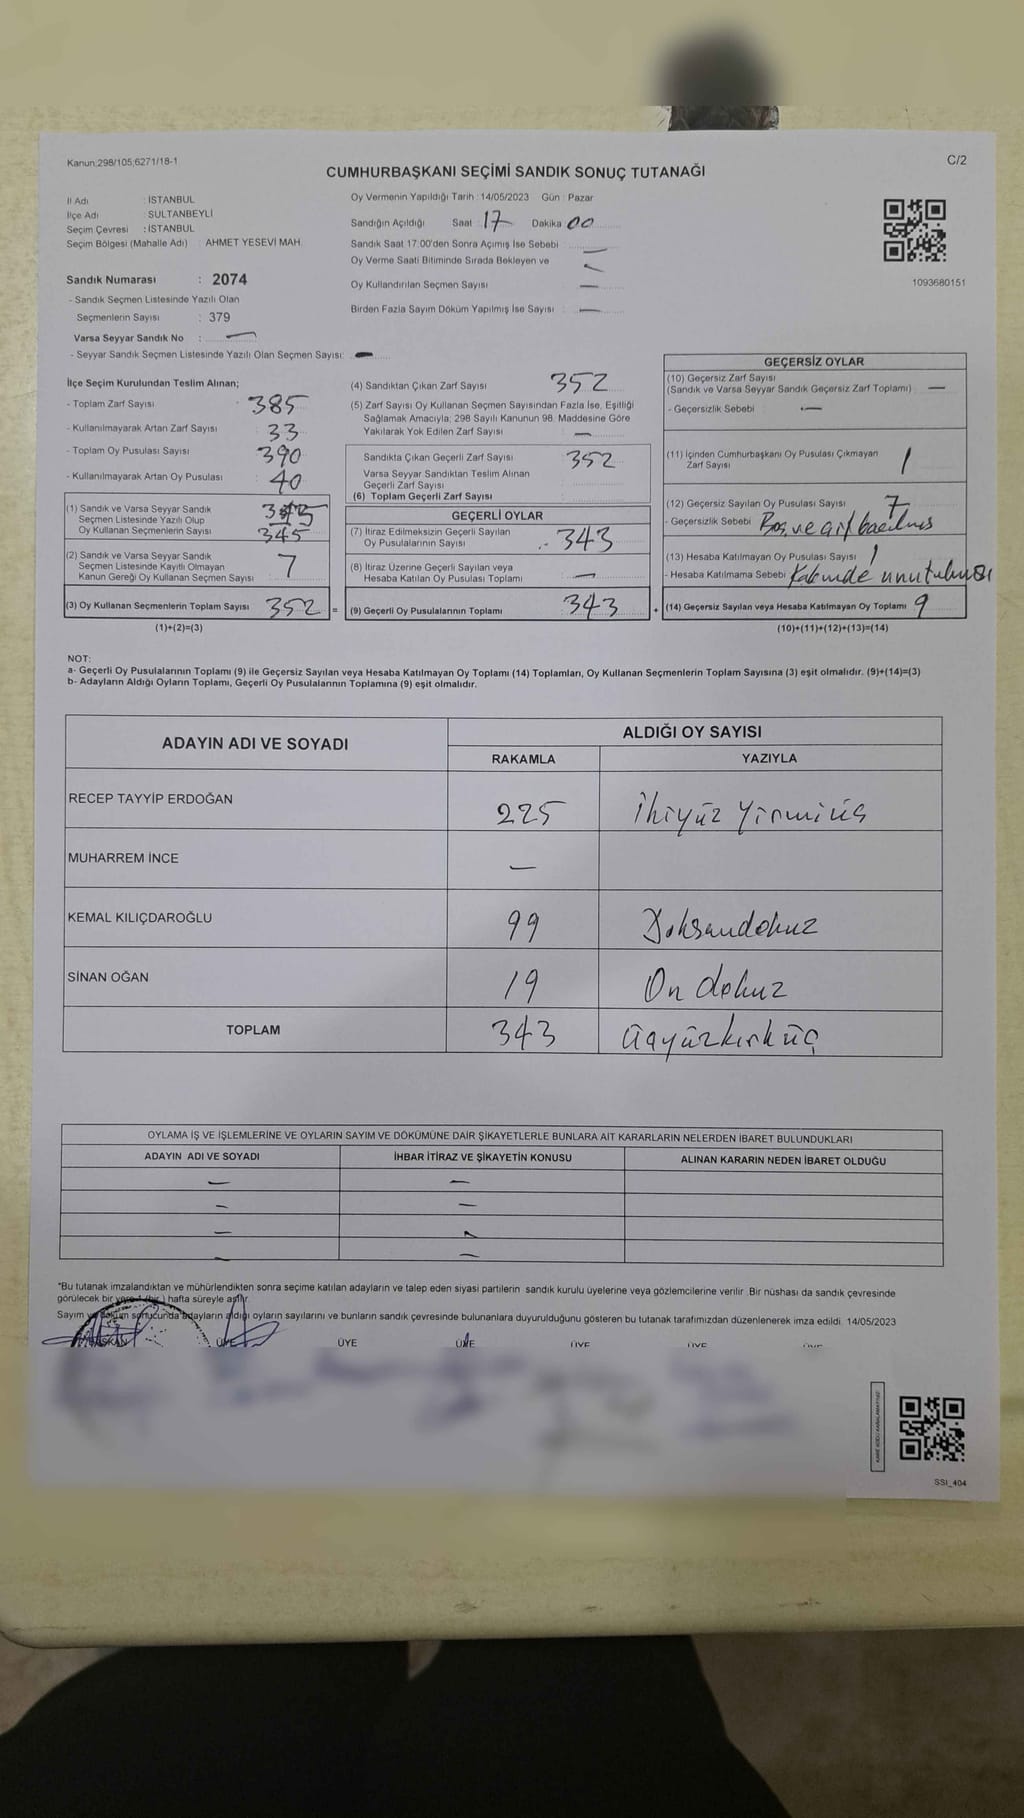 Kanun:298/105;6271/18-1
C/2
CUMHURBAŞKANI SEÇİMİ SANDIK SONUÇ TUTANAĞI
İl Adı : İSTANBUL
İlçe Adı : SULTANBEYLİ
Seçim Çevresi : İSTANBUL
Seçim Bölgesi (Mahalle Adı) : AHMET YESEVİ MAH.
Sandık Numarası : 2074
- Sandık Seçmen Listesinde Yazılı Olan
Seçmenlerin Sayısı : 379
Varsa Seyyar Sandık No : —
- Seyyar Sandık Seçmen Listesinde Yazılı Olan Seçmen Sayısı: —
Oy Vermenin Yapıldığı Tarih : 14/05/2023 Gün : Pazar
Sandığın Açıldığı Saat 17 Dakika 00
Sandık Saat 17:00'den Sonra Açımış İse Sebebi —
Oy Verme Saati Bitiminde Sırada Bekleyen ve
Oy Kullandırılan Seçmen Sayısı —
Birden Fazla Sayım Döküm Yapılmış İse Sayısı : —
1093680151
İlçe Seçim Kurulundan Teslim Alınan;
- Toplam Zarf Sayısı 385
- Kullanılmayarak Artan Zarf Sayısı 33
- Toplam Oy Pusulası Sayısı 390
- Kullanılmayarak Artan Oy Pusulası 40
(1) Sandık ve Varsa Seyyar Sandık
Seçmen Listesinde Yazılı Olup
Oy Kullanan Seçmenlerin Sayısı 345
(2) Sandık ve Varsa Seyyar Sandık
Seçmen Listesinde Kayıtlı Olmayan
Kanun Gereği Oy Kullanan Seçmen Sayısı 7
(3) Oy Kullanan Seçmenlerin Toplam Sayısı 352 =
(1)+(2)=(3)
(4) Sandıktan Çıkan Zarf Sayısı 352
(5) Zarf Sayısı Oy Kullanan Seçmen Sayısından Fazla İse, Eşitliği
Sağlamak Amacıyla; 298 Sayılı Kanunun 98. Maddesine Göre
Yakılarak Yok Edilen Zarf Sayısı —
Sandıkta Çıkan Geçerli Zarf Sayısı 352
Varsa Seyyar Sandıktan Teslim Alınan
Geçerli Zarf Sayısı
(6) Toplam Geçerli Zarf Sayısı
GEÇERLİ OYLAR
(7) İtiraz Edilmeksizin Geçerli Sayılan
Oy Pusulalarının Sayısı 343
(8) İtiraz Üzerine Geçerli Sayılan veya
Hesaba Katılan Oy Pusulası Toplamı —
(9) Geçerli Oy Pusulalarının Toplamı 343 +
GEÇERSİZ OYLAR
(10) Geçersiz Zarf Sayısı
(Sandık ve Varsa Seyyar Sandık Geçersiz Zarf Toplamı) —
- Geçersizlik Sebebi —
(11) İçinden Cumhurbaşkanı Oy Pusulası Çıkmayan
Zarf Sayısı 1
(12) Geçersiz Sayılan Oy Pusulası Sayısı 7
- Geçersizlik Sebebi Boş ve çift basılmış
(13) Hesaba Katılmayan Oy Pusulası Sayısı 1
- Hesaba Katılmama Sebebi Kabinde unutulması
(14) Geçersiz Sayılan veya Hesaba Katılmayan Oy Toplamı 9
(10)+(11)+(12)+(13)=(14)
NOT:
a- Geçerli Oy Pusulalarının Toplamı (9) ile Geçersiz Sayılan veya Hesaba Katılmayan Oy Toplamı (14) Toplamları, Oy Kullanan Seçmenlerin Toplam Sayısına (3) eşit olmalıdır. (9)+(14)=(3)
b- Adayların Aldığı Oyların Toplamı, Geçerli Oy Pusulalarının Toplamına (9) eşit olmalıdır.
ADAYIN ADI VE SOYADI
ALDIĞI OY SAYISI
RAKAMLA YAZIYLA
RECEP TAYYİP ERDOĞAN 225 İkiyüz Yirmi
MUHARREM İNCE —
KEMAL KILIÇDAROĞLU 99 Doksandokuz
SİNAN OĞAN 19 On dokuz
TOPLAM 343 üçyüzkırküç
OYLAMA İŞ VE İŞLEMLERİNE VE OYLARIN SAYIM VE DÖKÜMÜNE DAİR ŞİKAYETLERLE BUNLARA AİT KARARLARIN NELERDEN İBARET BULUNDUKLARI
ADAYIN ADI VE SOYADI İHBAR İTİRAZ VE ŞİKAYETİN KONUSU ALINAN KARARIN NEDEN İBARET OLDUĞU
*Bu tutanak imzalandıktan ve mühürlendikten sonra seçime katılan adayların ve talep eden siyasi partilerin sandık kurulu üyelerine veya gözlemcilerine verilir. Bir nüshası da sandık çevresinde
görülecek bir yere 1 (bir) hafta süreyle asılır.
Sayım ve döküm sonucunda adayların aldığı oyların sayılarını ve bunların sandık çevresinde bulunanlara duyurulduğunu gösteren bu tutanak tarafımızdan düzenlenerek imza edildi. 14/05/2023
BAŞKAN ÜYE ÜYE ÜYE ÜYE ÜYE ÜYE
SSİ_404